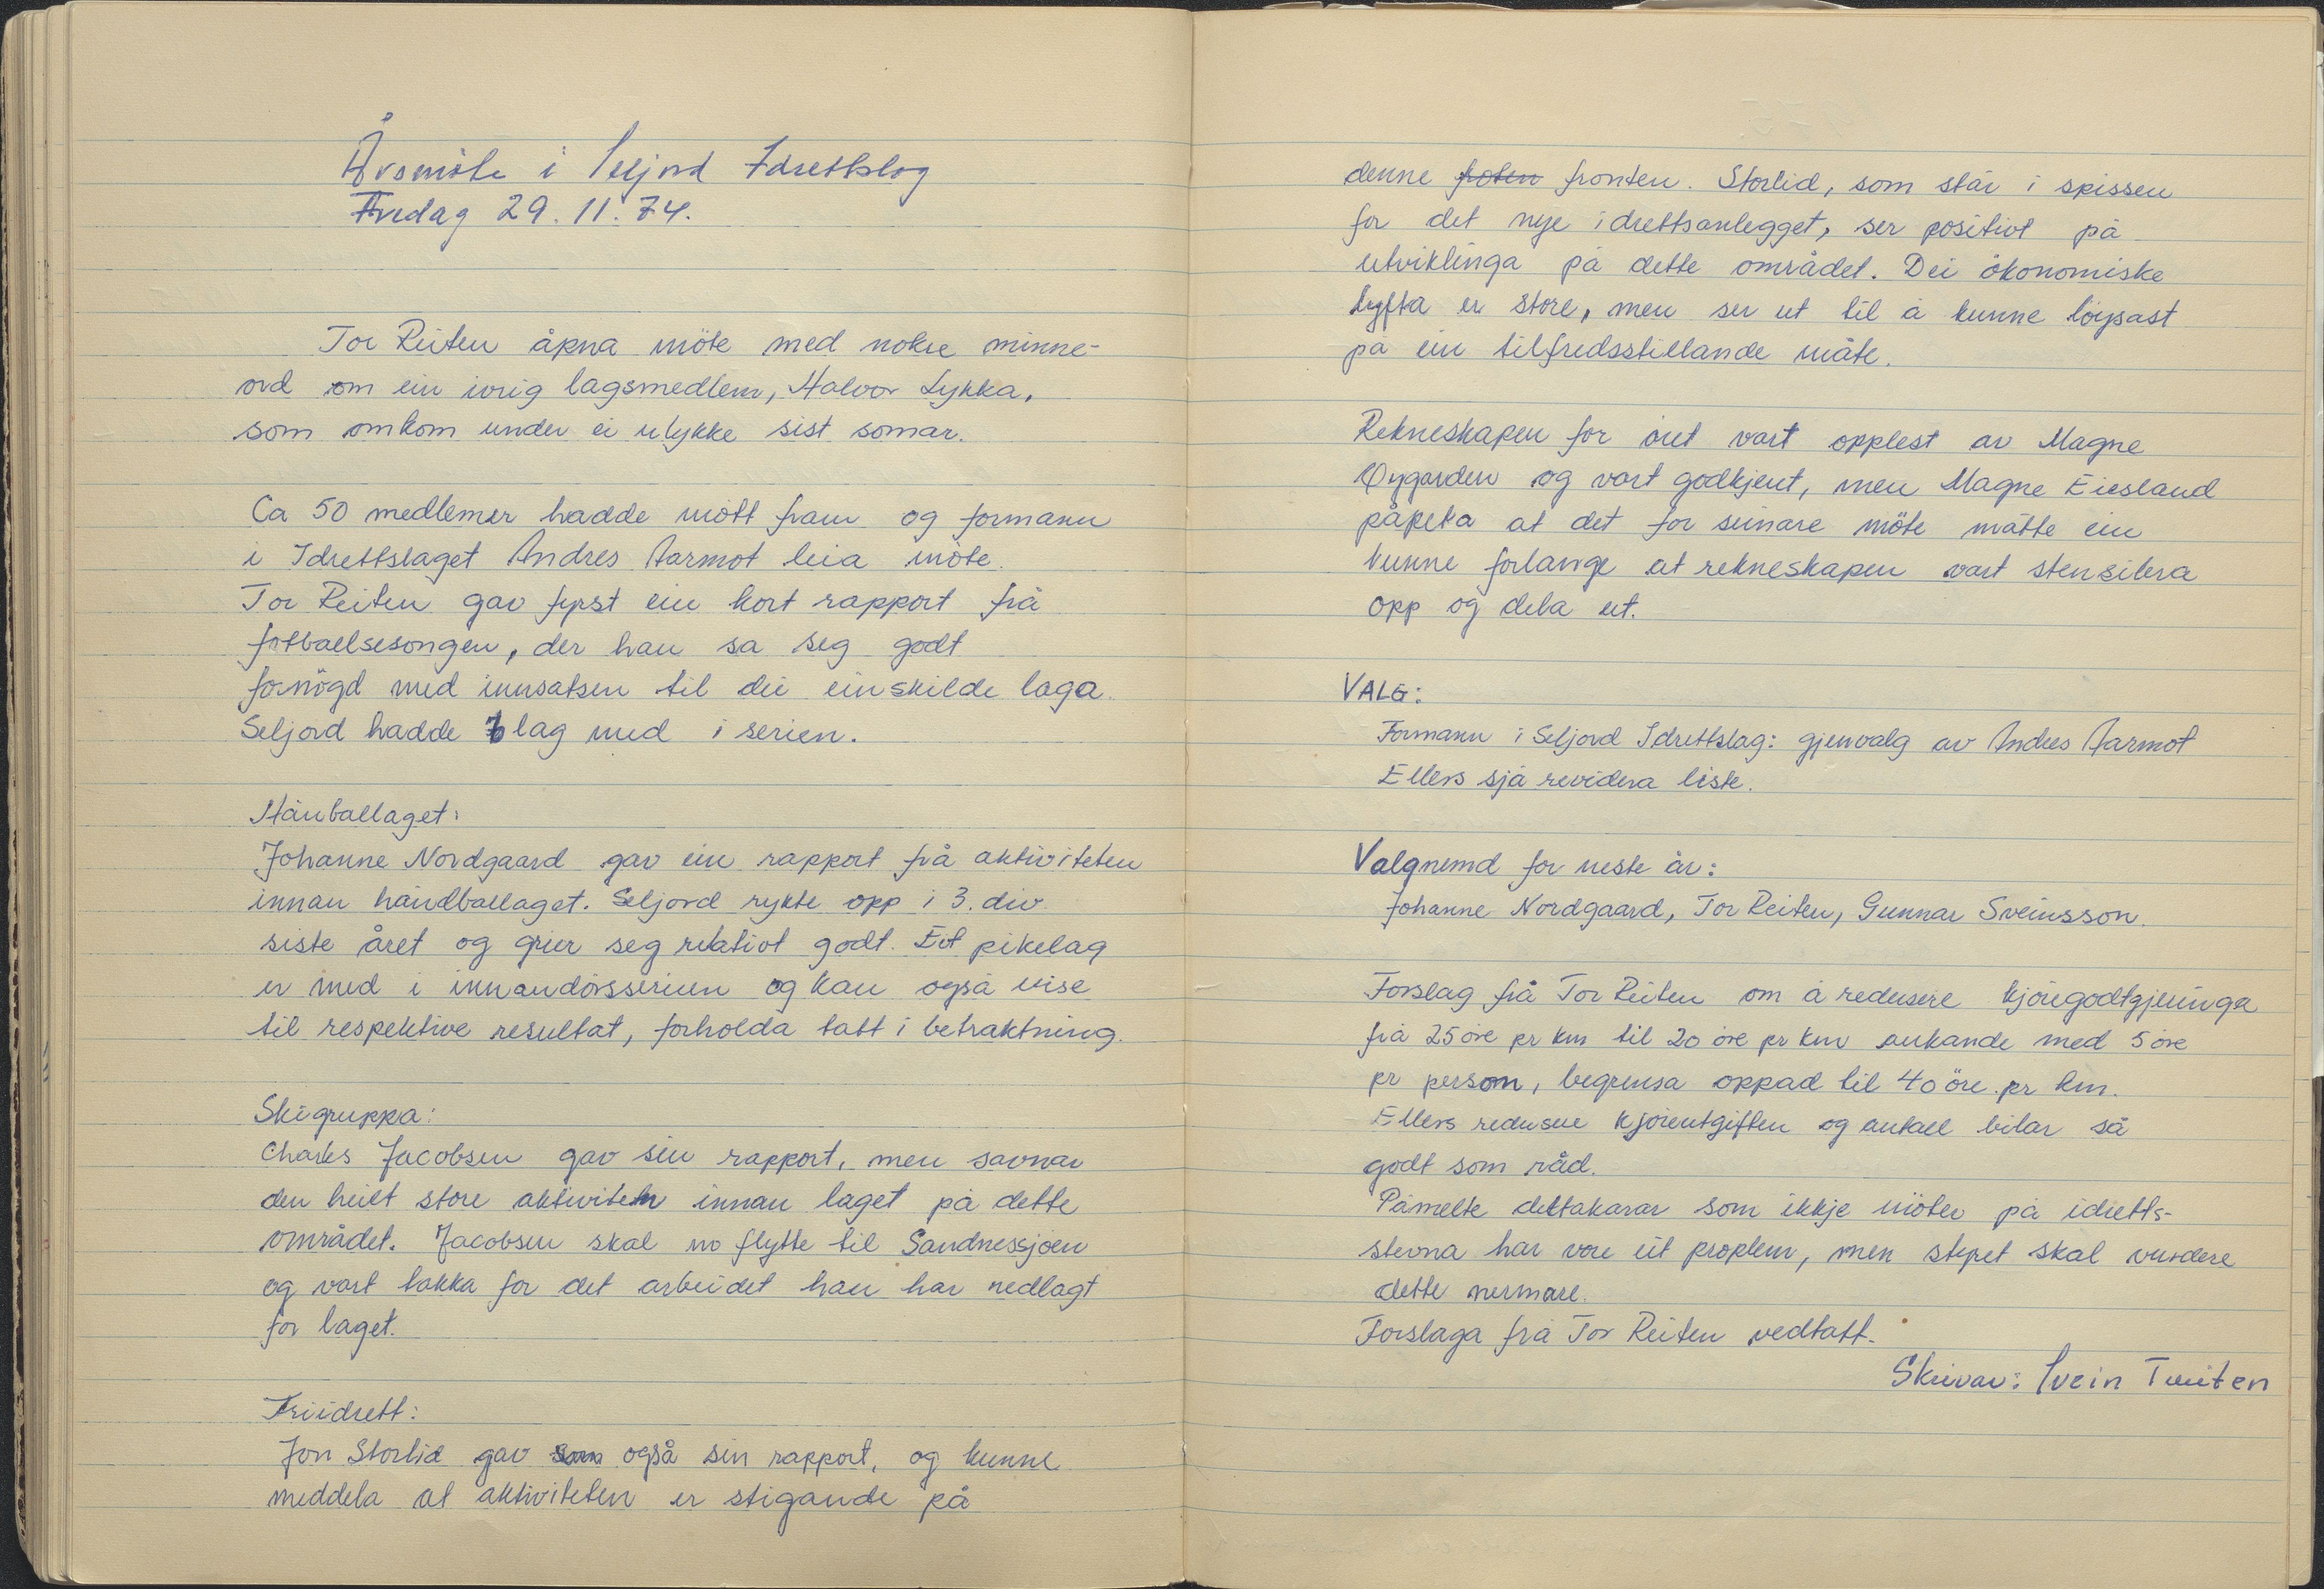 Årsmöte i Seljord Idrettslag
Fredag 29.11.74.
Tor Reiten åpna möte med nokre minne-
ord om ein ivrig lagsmedlem, Halvor Lykka,
som omkom under ei ulykke sist somar.
Ca 50 medlemer hadde mött fram og formann
i Idrettslaget Andres Aarmot leia möte.
Tor Reiten gav fyrst ein kort rapport frå
fotballsesongen, der han sa seg godt
fornögd med innsatsen til dei einskilde laga.
Seljord hadde lag med i serien.
Hånballaget:
Johanne Nordgaard gav ein rapport frå aktiviteten
innan håndballaget. Seljord rykte opp i 3. div
siste året og greier seg relativt godt. Eit pikelag
er med i innandörsserien og kan også vise
til respektive resultat, forholda tatt i betraktning.
Skigruppa:
Charles Jacobsen gav sin rapport, men savnar
den heilt store aktiviteten innan laget på dette
området. Jacobsen skal no flytte til Sandnessjoen
og vart takka for det arbeidet han har nedlagt
for laget.
Friidrett:
Jon Storlid gav som også sin rapport, og kunne
meddela at aktiviteten er stigande på
denne foten fronten. Storlid, som står i spissen
for det nye idrettsanlegget, ser positivt på
utviklinga på dette området. Dei ökonomiske
lyfta er store, men ser ut til å kunne löysast
på ein tilfredsstillande måte.
Rekneskapen for året vart opplest av Magne
Øygarden og vart godkjent, men Magne Eiesland
påpeka at det for seinare möte måtte ein
kunne forlange at rekneskapen vart stensilera
opp og dela ut.
VALG:
Formann i Seljord Idrettslag: gjenvalg av Andres Aarmot
Ellers sjå revidera liste.
Valgnemd for neste år:
Johanne Nordgaard, Tor Reiten, Gunnar Sveinsson.
Forslag frå Tor Reiten om å redusere kjöregodtgjeringa
frå 25 öre pr km til 20 öre pr km aukande med 5 öre
pr person, begrensa oppad til 40 öre pr km.
Ellers redusere kjöreutgiften og antall bilar så
godt som råd.
Påmelte deltakarar som ikkje möter på idretts-
stevna har vore eit proplem, men styret skal vurdere
dette nermare.
Forslaga frå Tor Reiten vedtatt.
Skrivar: Svein Tveiten